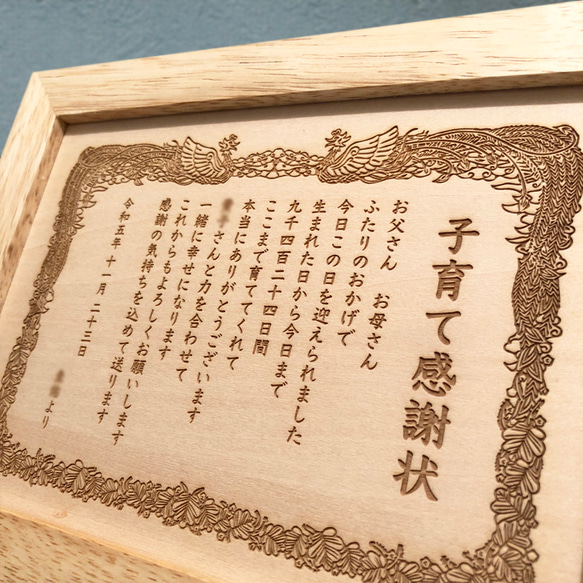 子育て感謝状
お父さん　お母さん
ふたりのおかげで
今日この日を迎えられました
生まれた日から今日まで
九千四百二十四日間
ここまで育ててくれて
本当にありがとうございます
さんと力を合わせて
一緒に幸せになります
これからもよろしくお願いします
感謝の気持ちを込めて送ります
令和五年十一月二十三日
より